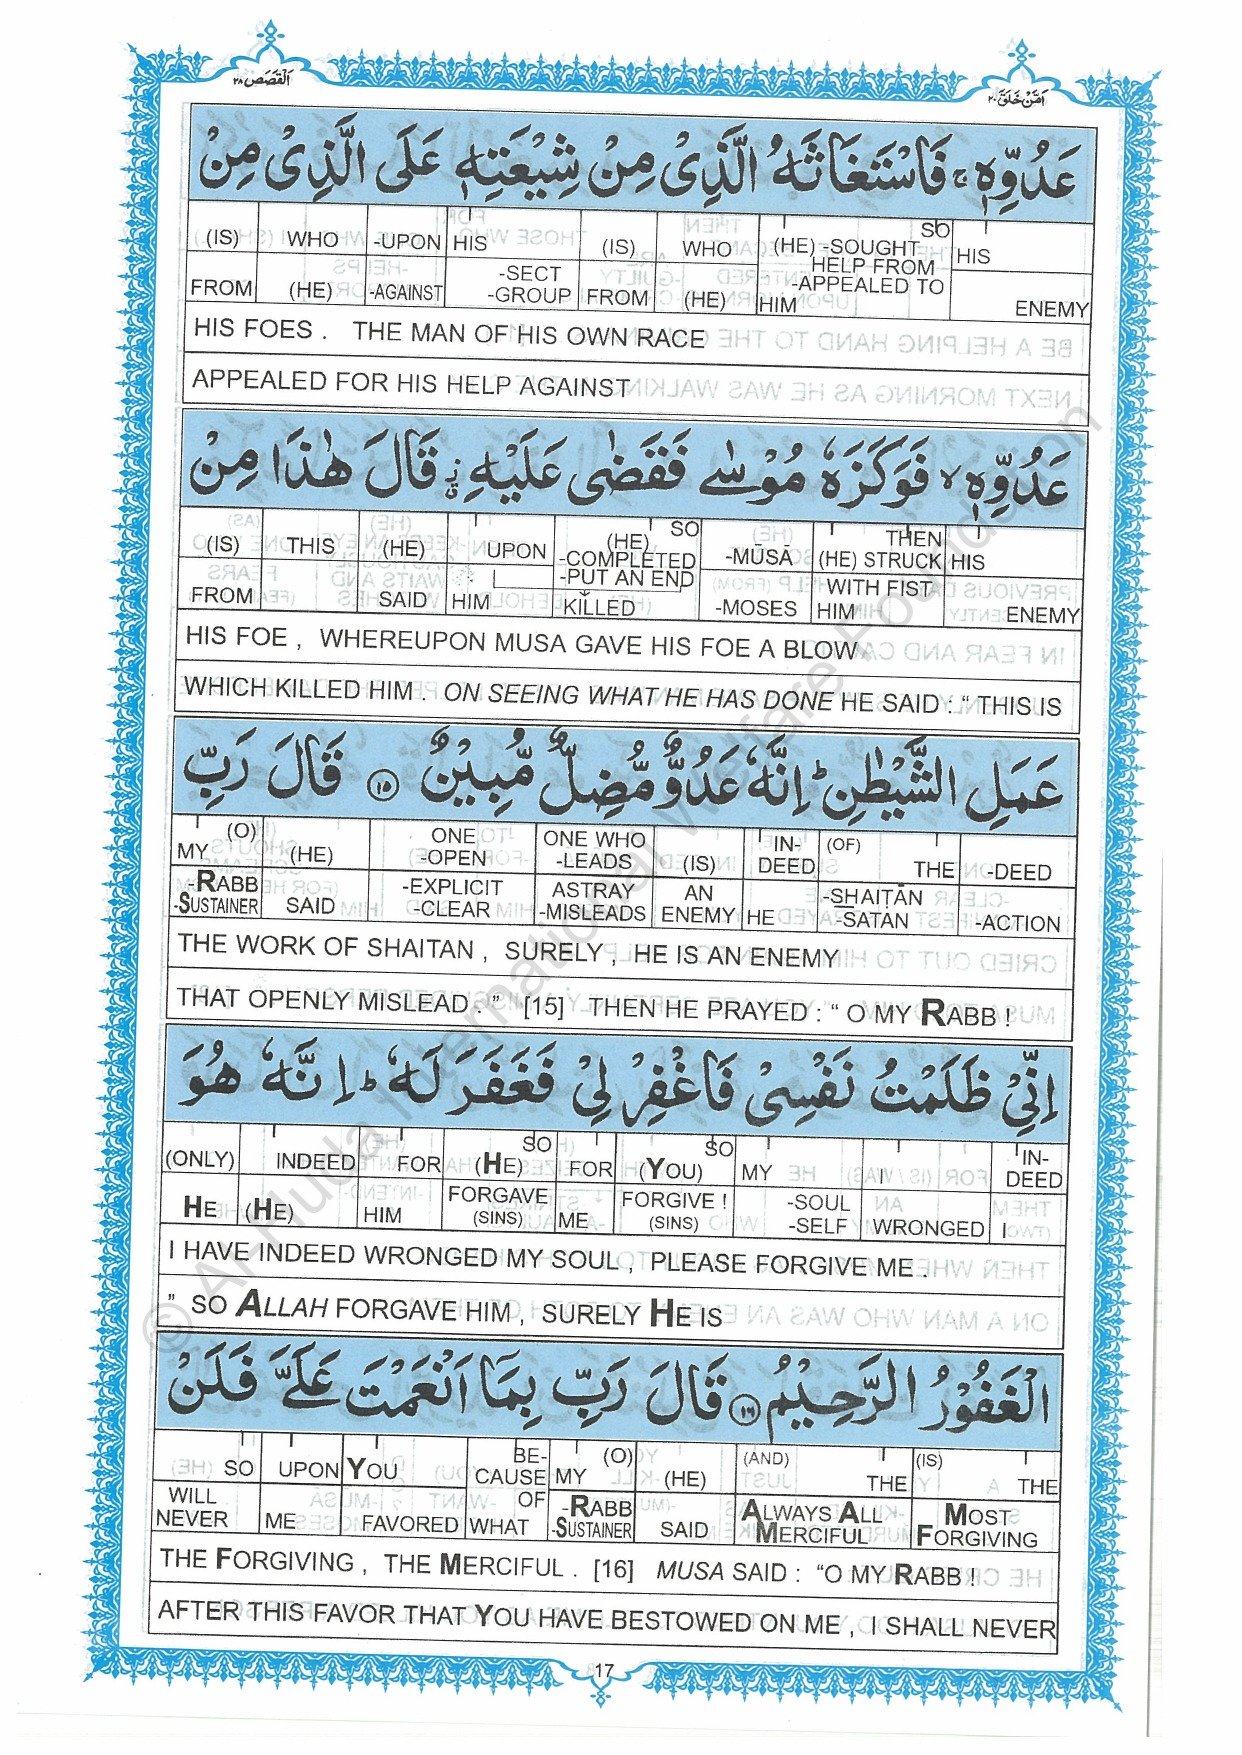 الْقَصَص ٢٨
اَمَّنْ خَلَقَ ٢٠
عَدُوِّهٖ ۚ فَاسْتَغَاثَهُ الَّذِىْ مِنْ شِيْعَتِهٖ عَلَى الَّذِىْ مِنْ
(IS) WHO -UPON HIS (IS) WHO (HE) -SOUGHT SO HIS
HELP FROM
FROM (HE) -AGAINST -SECT -GROUP FROM (HE) -APPEALED TO HIM ENEMY
HIS FOES . THE MAN OF HIS OWN RACE
APPEALED FOR HIS HELP AGAINST
عَدُوِّهٖ ۙ فَوَكَزَهٗ مُوْسٰى فَقَضٰى عَلَيْهِ ۖ ق قَالَ هٰذَا مِنْ
(IS) THIS (HE) UPON (HE) SO -COMPLETED -MŪSĀ THEN (HE) STRUCK HIS
-PUT AN END WITH FIST
FROM SAID HIM KILLED -MOSES HIM ENEMY
HIS FOE , WHEREUPON MUSA GAVE HIS FOE A BLOW
WHICH KILLED HIM . ON SEEING WHAT HE HAS DONE HE SAID : “ THIS IS
عَمَلِ الشَّيْطٰنِ ؕ اِنَّهٗ عَدُوٌّ مُّضِلٌّ مُّبِيْنٌ ۝١٥ قَالَ رَبِّ
MY (O) (HE) ONE -OPEN ONE WHO -LEADS (IS) IN-DEED (OF) THE -DEED
-RABB -SUSTAINER SAID -EXPLICIT -CLEAR ASTRAY -MISLEADS AN ENEMY HE -SHAIṬĀN -SATAN -ACTION
THE WORK OF SHAITAN , SURELY , HE IS AN ENEMY
THAT OPENLY MISLEAD . ” [15] THEN HE PRAYED : “ O MY RABB !
اِنِّىْ ظَلَمْتُ نَفْسِىْ فَاغْفِرْ لِىْ فَغَفَرَ لَهٗ ؕ اِنَّهٗ هُوَ
(ONLY) INDEED FOR SO (HE) FOR SO (YOU) MY I IN-DEED
HE (HE) HIM FORGAVE (SINS) ME FORGIVE ! (SINS) -SOUL -SELF WRONGED I
I HAVE INDEED WRONGED MY SOUL , PLEASE FORGIVE ME .
” SO ALLAH FORGAVE HIM , SURELY HE IS
الْغَفُوْرُ الرَّحِيْمُ ۝١٦ قَالَ رَبِّ بِمَاۤ اَنْعَمْتَ عَلَىَّ فَلَنْ
SO UPON YOU BE-CAUSE MY (O) (HE) (AND) THE (IS) THE
WILL NEVER ME FAVORED OF WHAT -RABB -SUSTAINER SAID ALWAYS ALL MERCIFUL MOST FORGIVING
THE FORGIVING , THE MERCIFUL . [16] MUSA SAID : “O MY RABB !
AFTER THIS FAVOR THAT YOU HAVE BESTOWED ON ME , I SHALL NEVER
17
© Al-Huda International Welfare Foundation